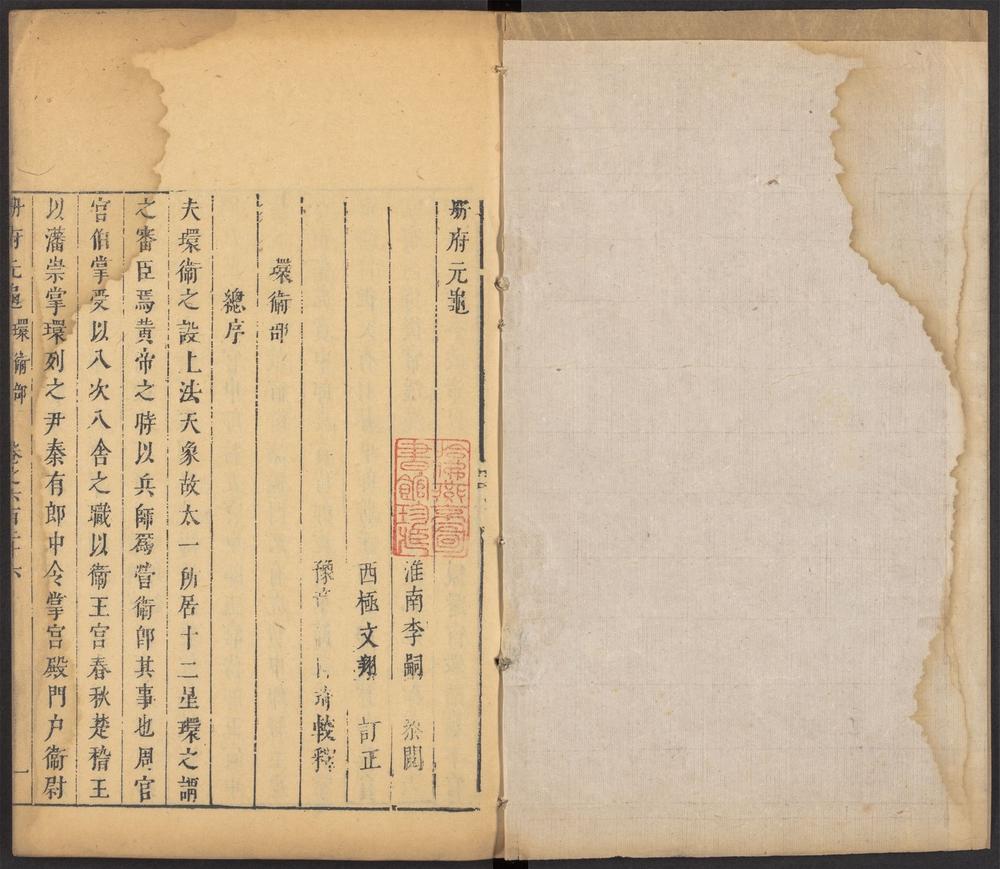 册府元龜
淮南李嗣 叅閱
西極文翔 訂正
豫章 較釋
環衛部
總序
夫環衛之設上法天象故太一所居十二星環之謂
之審臣焉黃帝之時以兵師爲營衛卽其事也周官
宮伯掌受以八次八舍之職以衛王宮春秋楚穆王
以潘崇掌環列之尹秦有郎中令掌宮殿門户衛尉
册府元龜 環衛部 卷之六百二十六 一
哈佛燕京圖書館珍藏